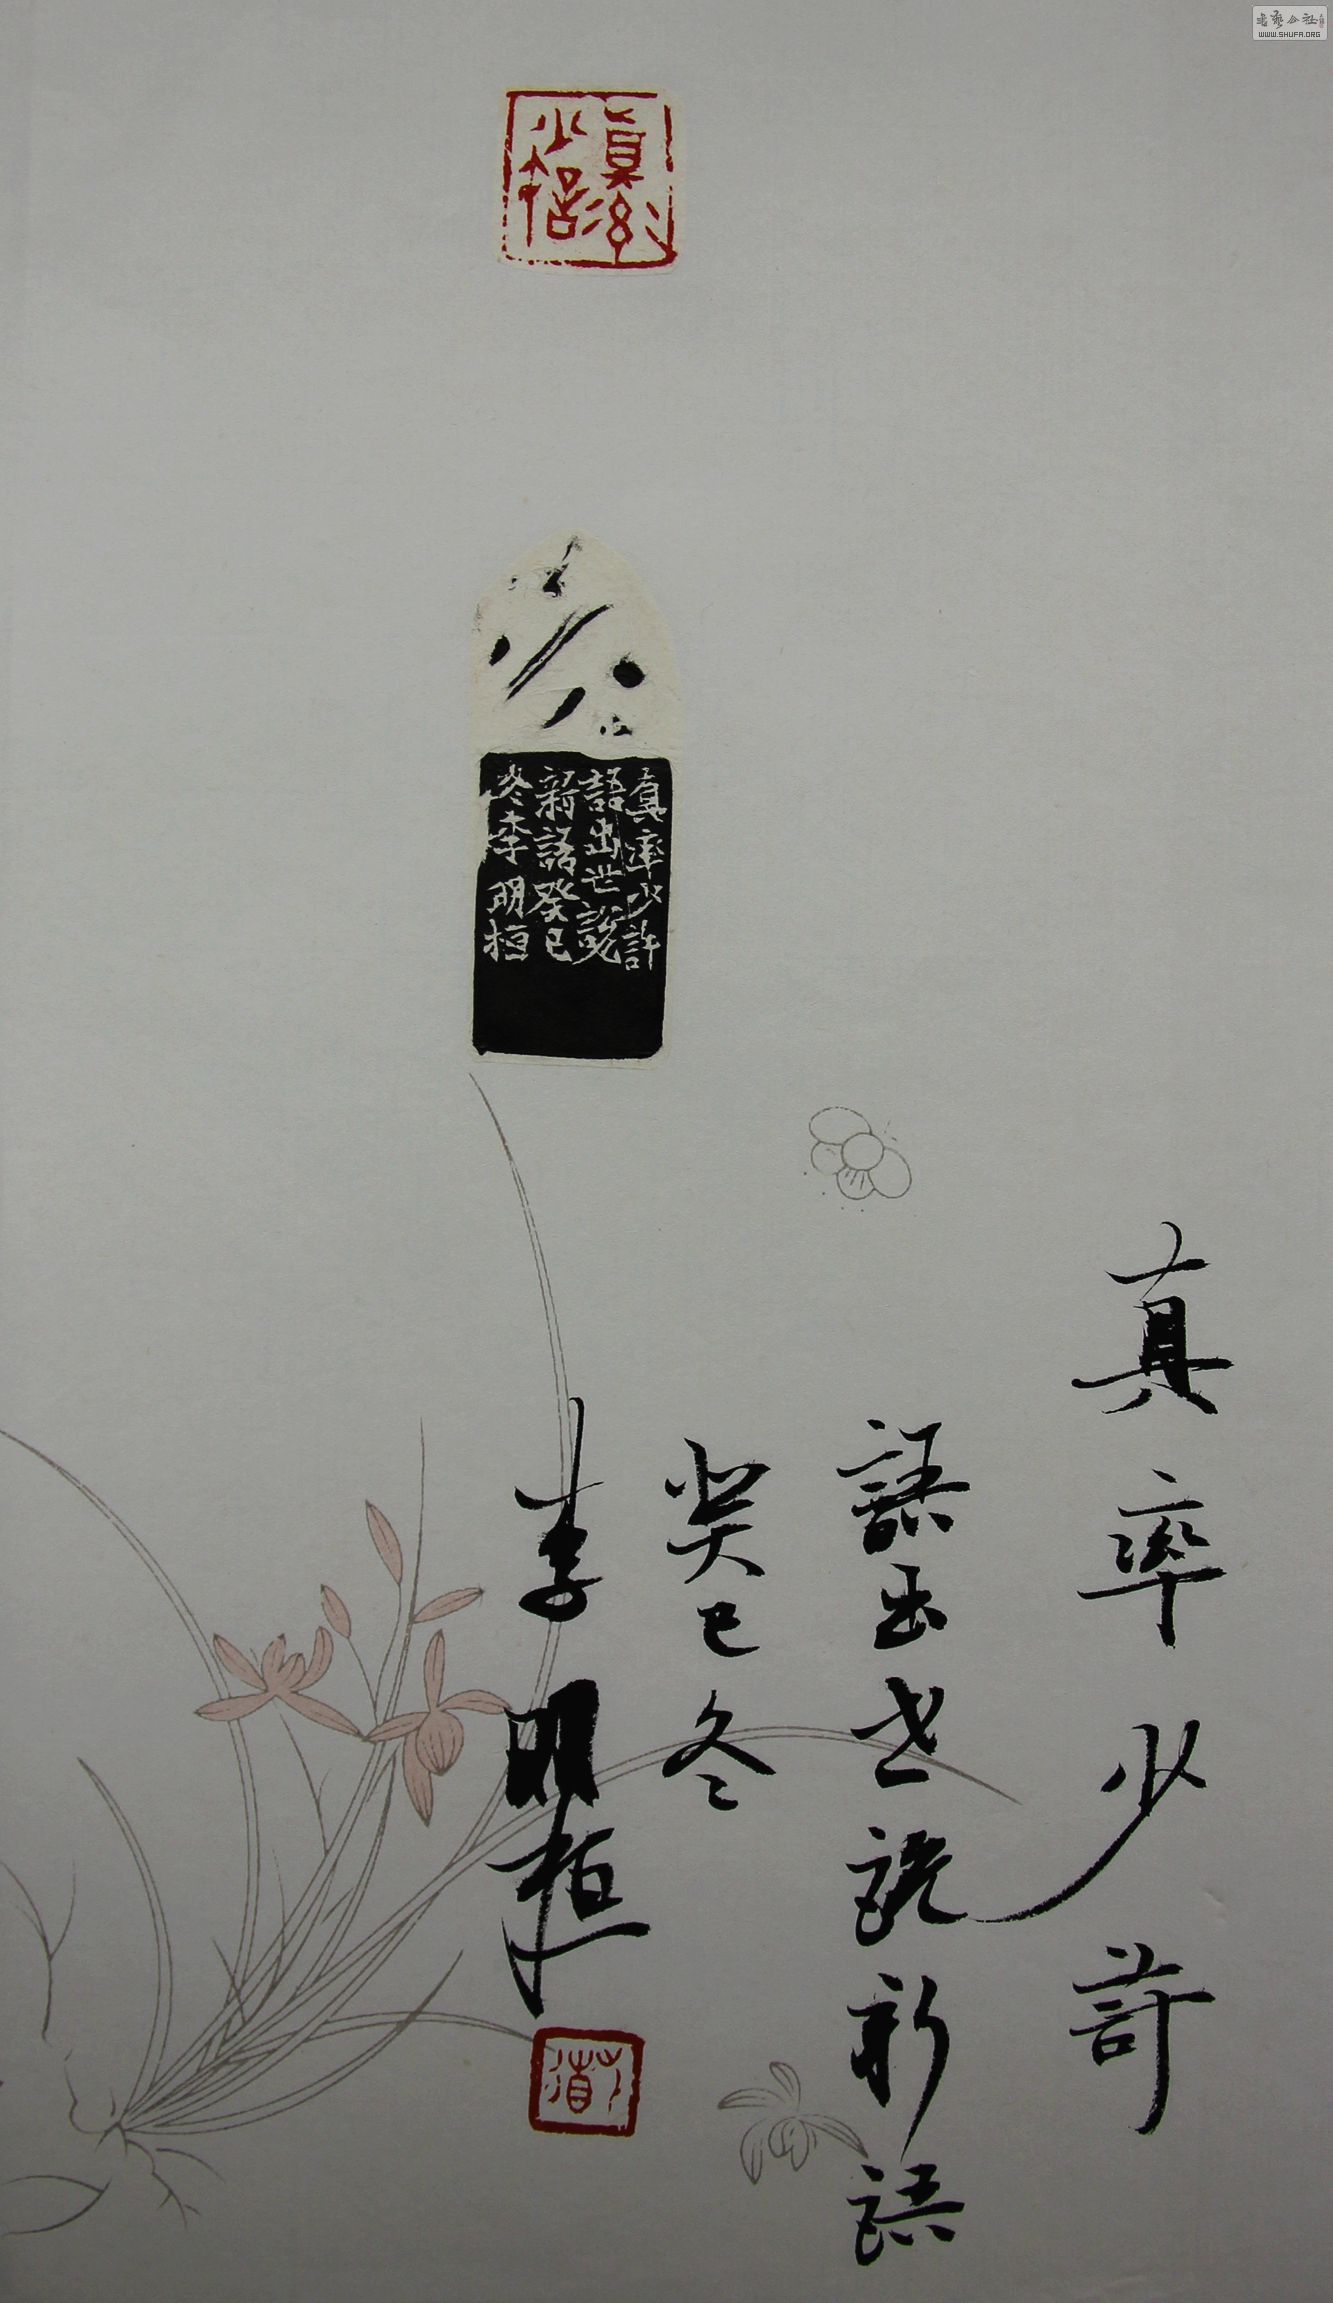 書藝公社
WWW.SHUFA.ORG
真率少許
真率少許
語出世說
新語癸巳
冬李明桓
真率少許
語出世說新語
癸巳冬
李明桓